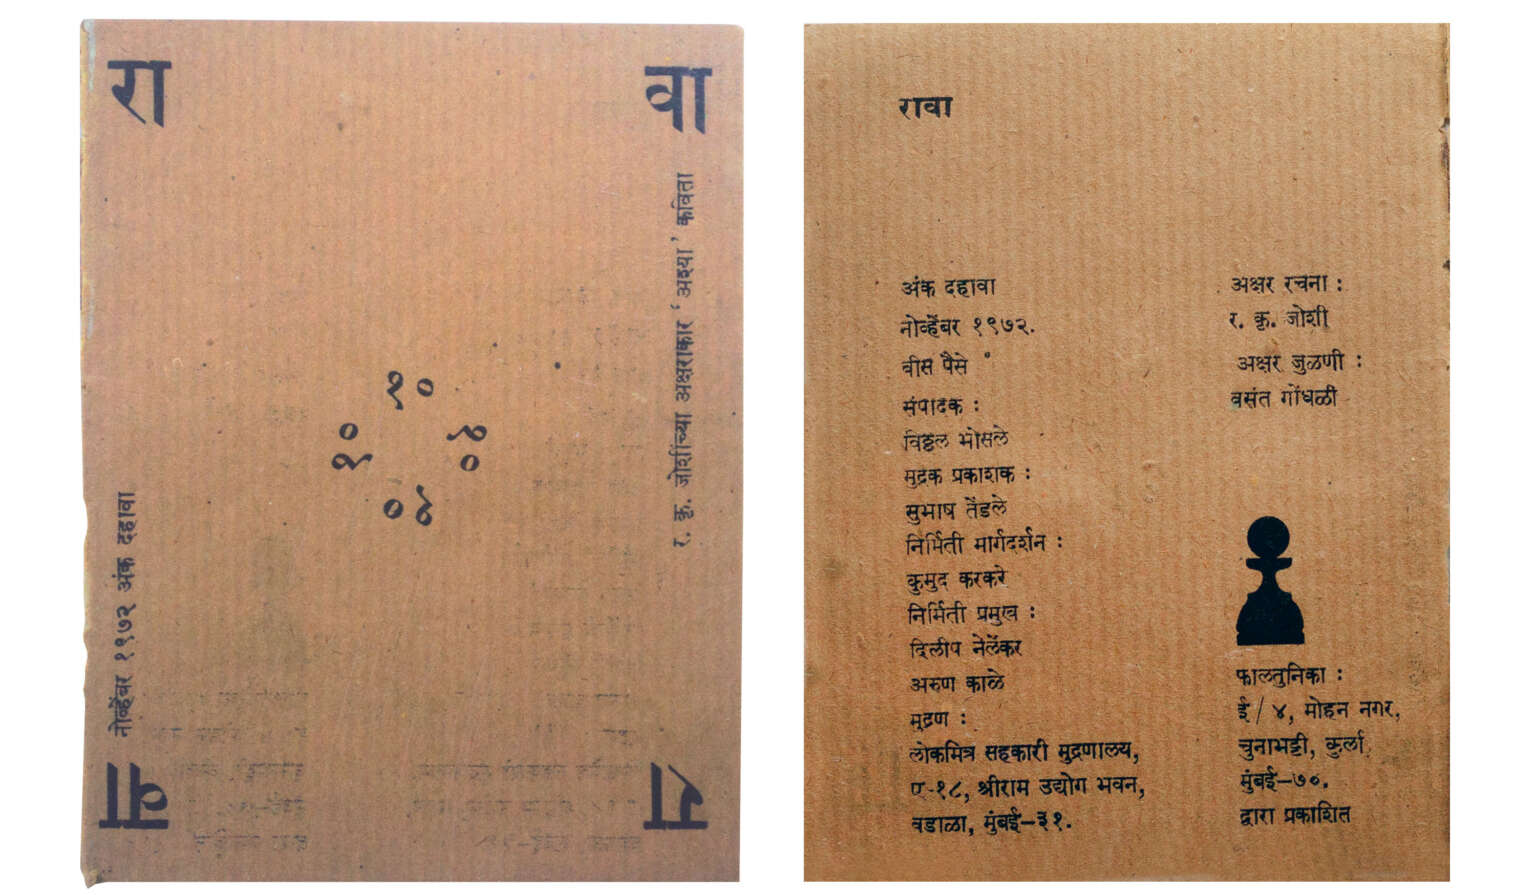 रा
वा
र. कृ. जोशींच्या अक्षराकार ' अइया ' कविता
१०
१०
१०
१०
नोव्हेंबर १९७२ अंक दहावा
वा
रा
रावा
अंक दहावा
नोव्हेंबर १९७२.
वीस पैसे
संपादक :
विठ्ठल भोसले
मुद्रक प्रकाशक :
सुभाष तेंडले
निर्मिती मार्गदर्शन :
कुमुद करकरे
निर्मिती प्रमुख :
दिलीप नेर्लेकर
अरुण काळे
मुद्रण :
लोकमित्र सहकारी मुद्रणालय,
ए-१८, श्रीराम उद्योग भवन,
वडाळा, मुंबई-३१.
अक्षर रचना :
र. कृ. जोशी
अक्षर जुळणी :
वसंत गोंधळी
फालतुनिका :
ई / ४, मोहन नगर,
चुनाभट्टी, कुर्ला,
मुंबई-७०.
द्वारा प्रकाशित